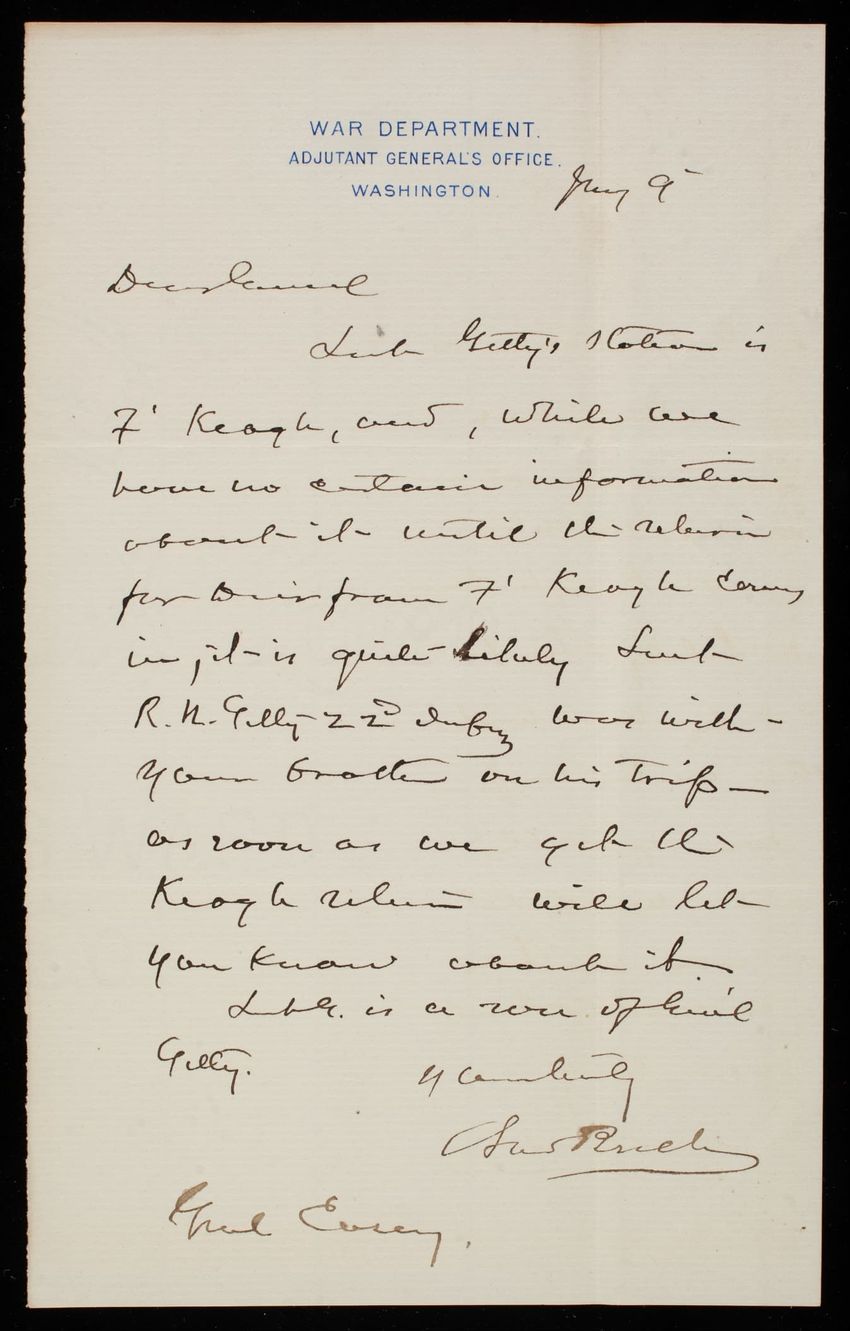 WAR DEPARTMENT.
ADJUTANT GENERAL'S OFFICE.
WASHINGTON.
Jany 9
Dear General
Lieut Getty's station is
Ft Keogh, and, while we
have no certain information
about it until the return
for Decr from Ft Keogh comes
in, it is quite likely Lieut
R. N. Getty 22nd Infty was with
your brother on his trip—
as soon as we get the
Keogh return will let
you know about it
Lieut G. is a son of Gen'l
Getty.
Yours truly
Genl Casey.